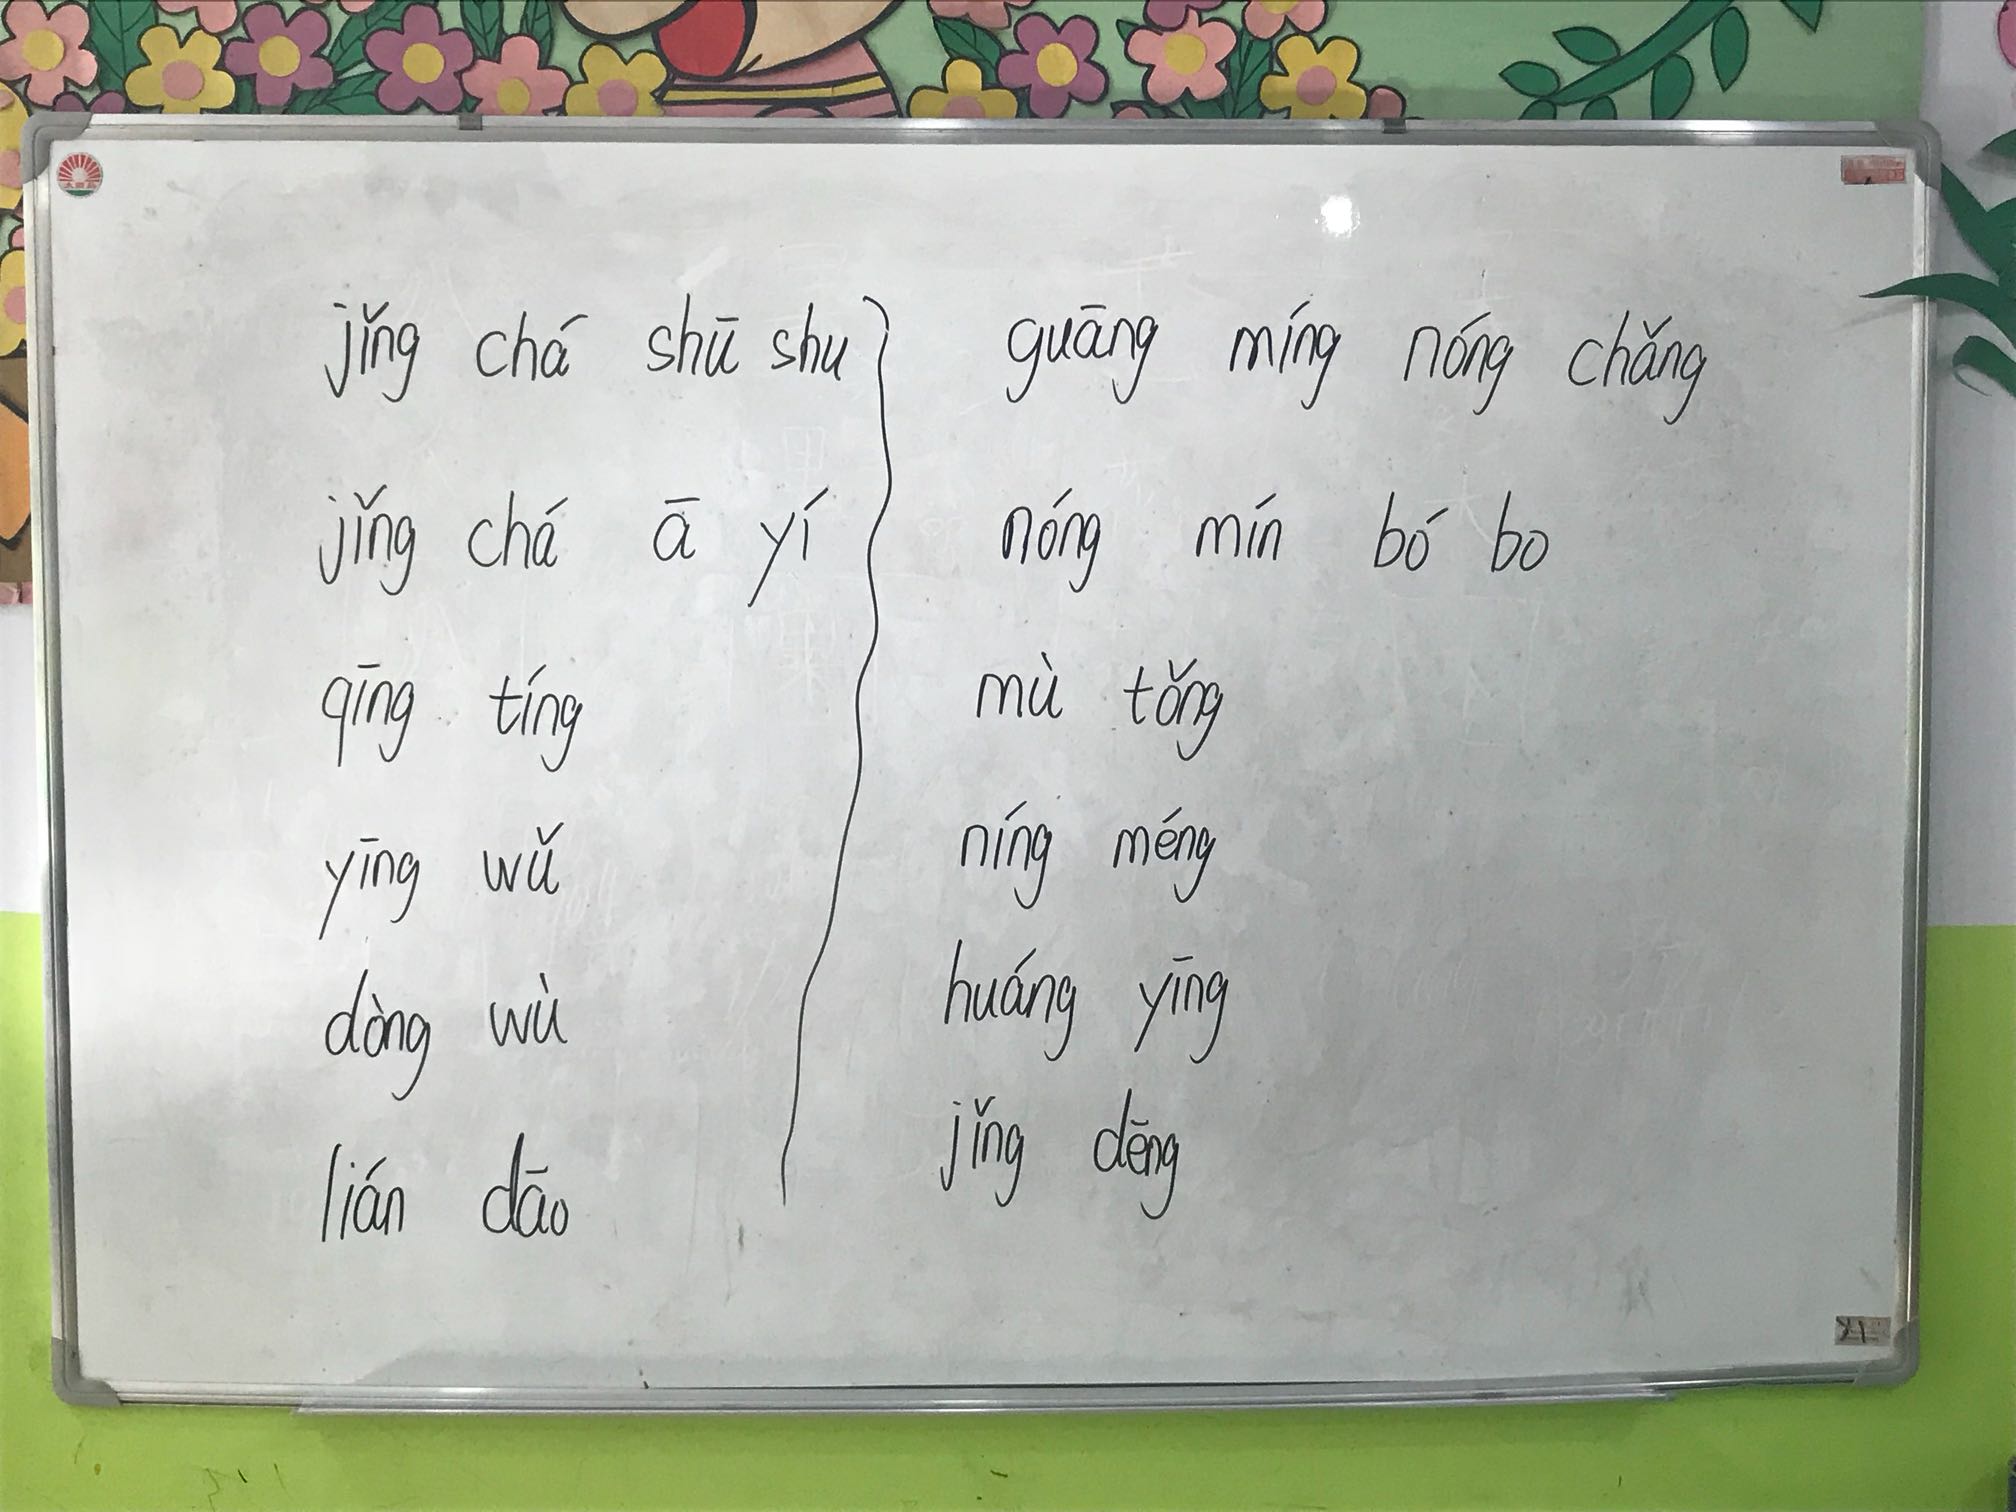 jǐng chá shū shu
jǐng chá ā yí
qīng tíng
yīng wǔ
dòng wù
lián dāo
guāng míng nóng chǎng
nóng mín bó bo
mù tǒng
níng méng
huáng yīng
jǐng dēng